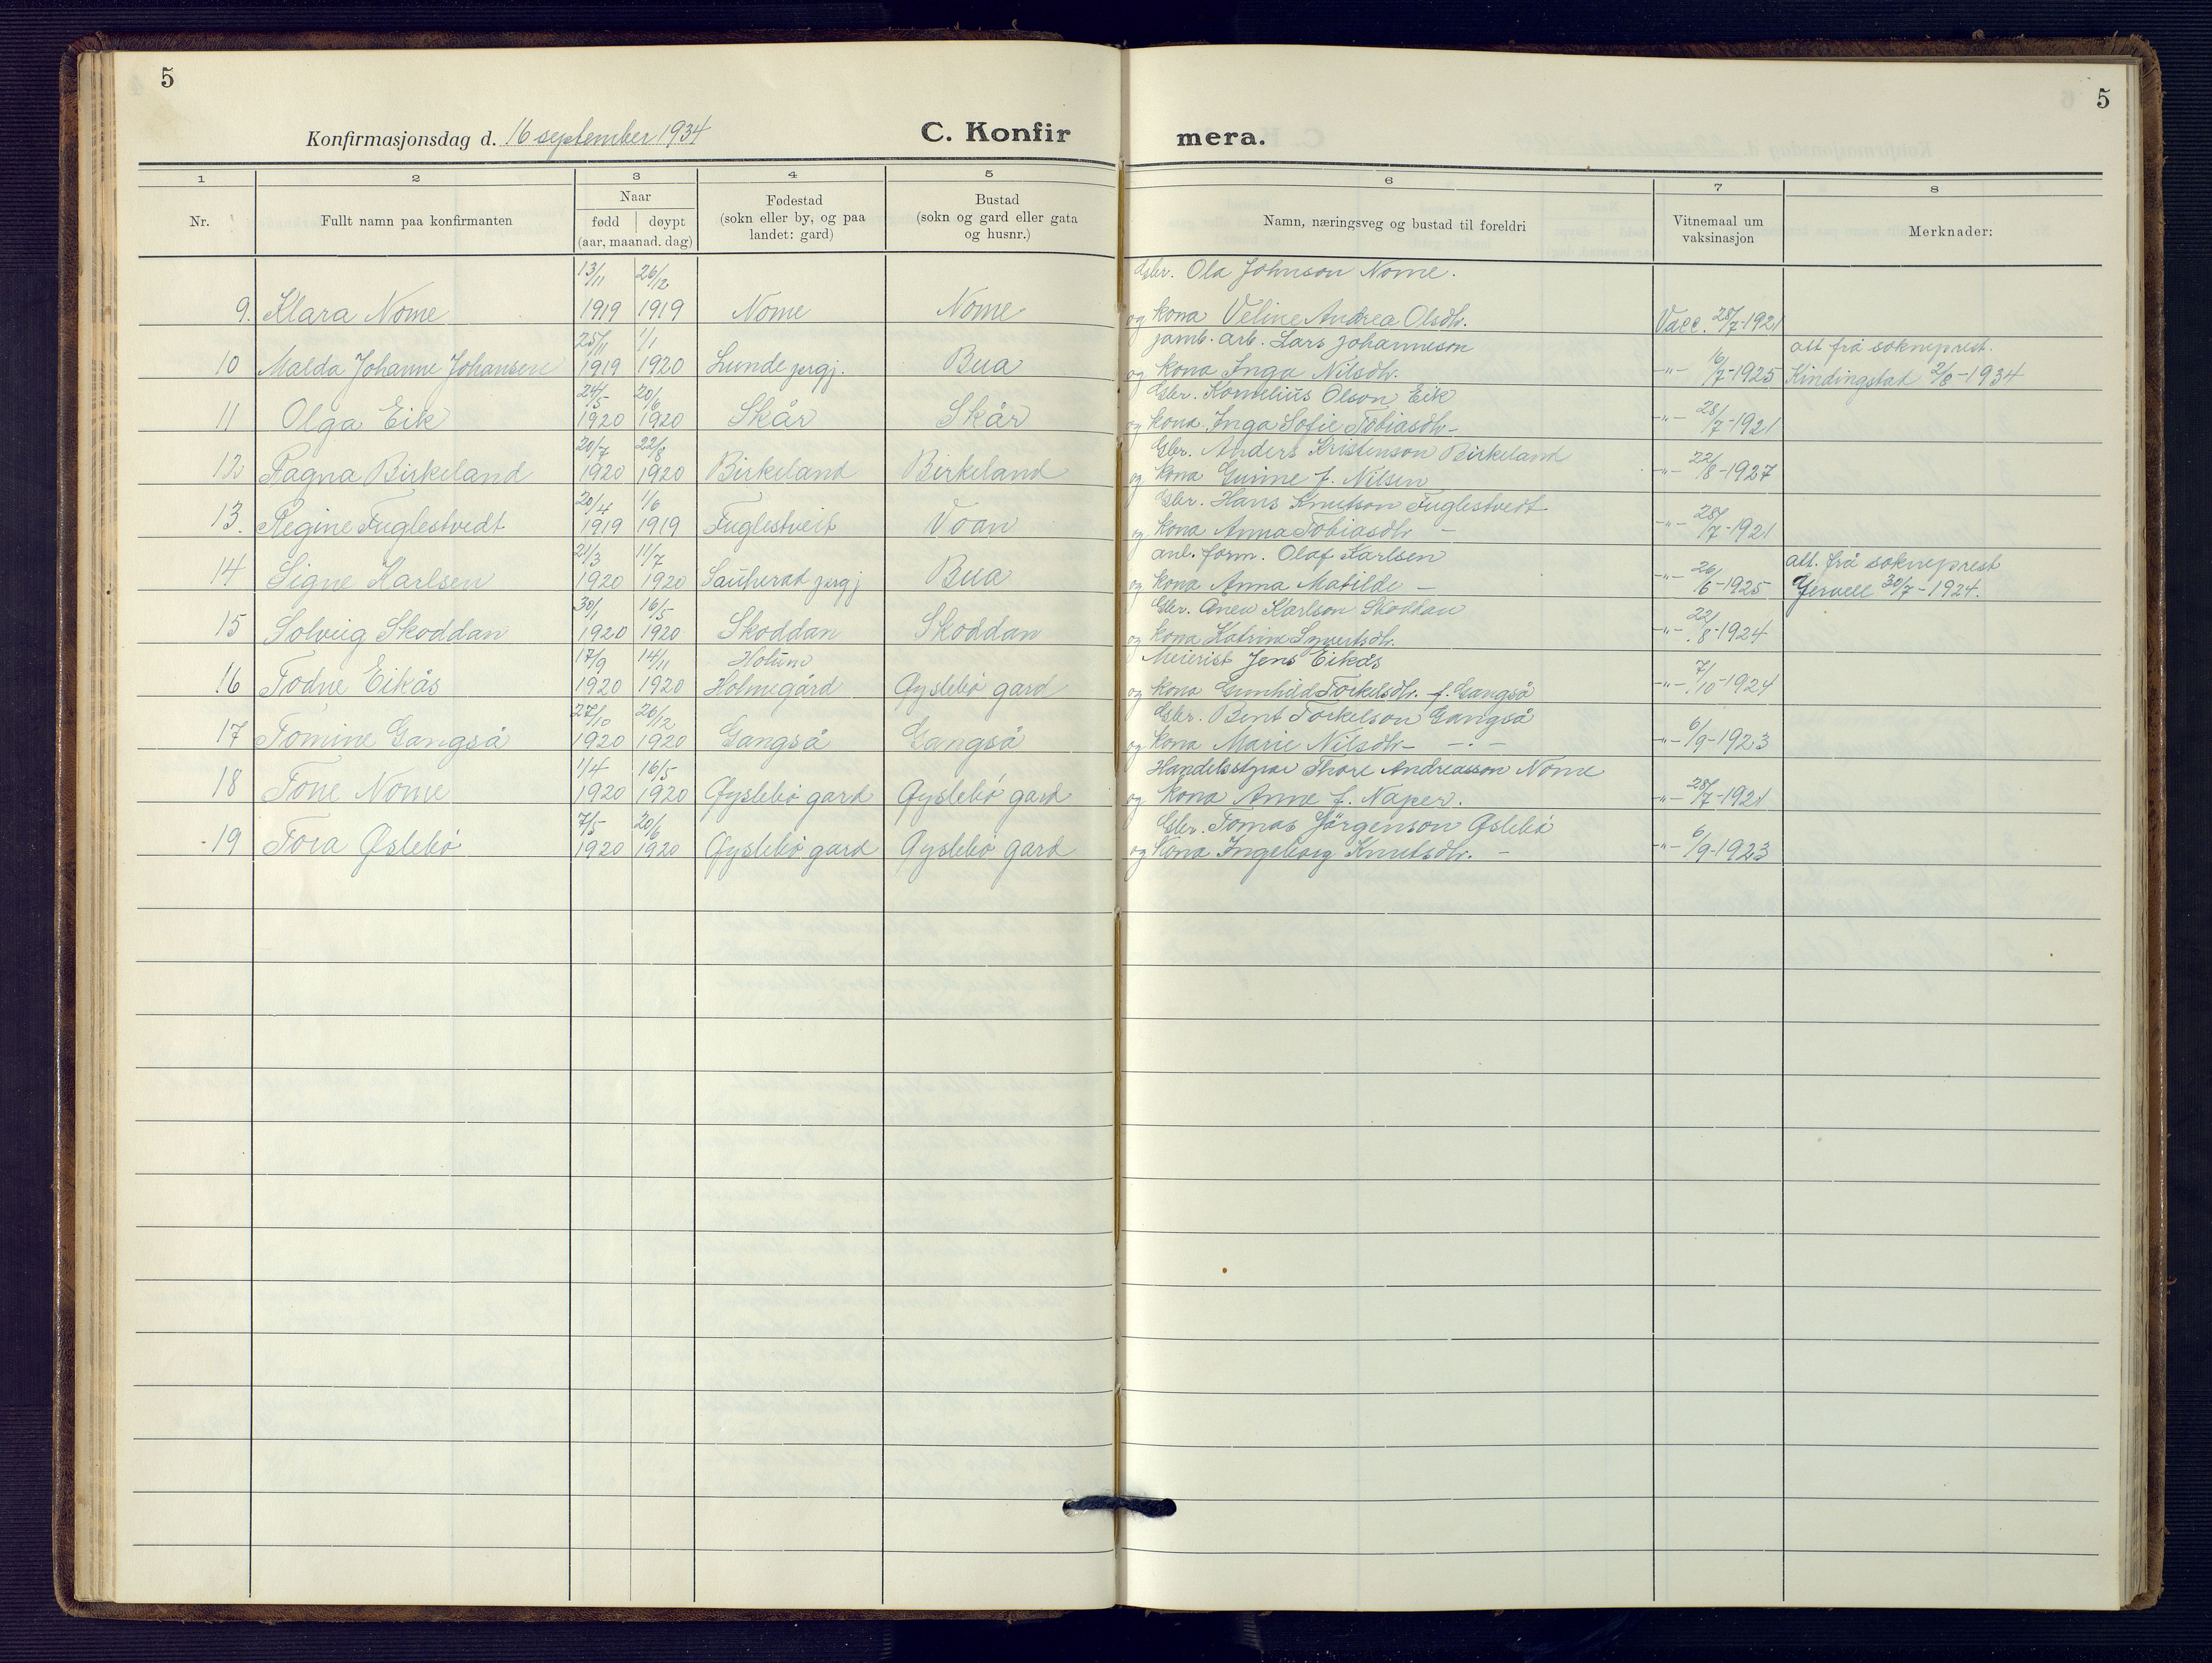 5
5
Konfirmasjonsdag d. 16 september 1934
C. Konfir
mera.
1 2 3 4 5 6 7 8
Nr.
Fullt namn paa konfirmanten
Naar
født døypt
(aar, maanad. dag)
Fødestad
(sokn eller by, og paa
landet: gard)
Bustad
(sokn og gard eller gata
og husnr.)
Namn, næringsveg og bustad til foreldri
Vitnemaal um
vaksinasjon
Merknader:
13/11 26/12 Gbr. Ola Johnson Nome.
9. Klara Nome 1919 1919 Nome Nome og kona Veline Andrea Olsdtr. Vacc. 28/7-1921
25/11 1/1 jamb. arb. Lars Johanneson att. frå sokneprest.
10 Malda Johanne Johansen 1919 1920 Lunde prgj. Bua og kona Inga Nilsdtr. -"- 16/7-1925 Kindingstad 2/8-1934
24/5 20/6 Gbr. Kornelius Olson Eik
11 Olga Eik 1920 1920 Skår Skår og kona Inga Sofie Tobiasdtr - -"- 28/7-1921
20/7 22/8 Gbr. Anders Kristenson Birkeland
12 Ragna Birkeland 1920 1920 Birkeland Birkeland og kona Gunne f. Nilsen -"- 22/8-1927
20/4 1/6 Gbr. Hans Knutson Fuglestvedt
13. Regine Fuglestvedt 1919 1919 Fuglestveit Voan og kona Anna Tobiasdtr - -"- 28/7-1921
21/3 11/7 anl. form. Olaf Karlsen att. frå sokneprest
14 Signe Karlsen 1920 1920 Sauherad prgj Bua og kona Anna Matilde - -"- 26/6-1925 Gjervell 30/7-1924.
30/1 16/5 Gbr. Anen Karlson Skoddan
15 Solveig Skoddan 1920 1920 Skoddan Skoddan og kona Katrine Syvertsdtr. -"- 22/8-1924
17/9 14/11 Holum Meierist Jens Eikås
16 Todne Eikås 1920 1920 Holmegård Øyslebö gard og kona Gunhild Torkelsdtr. f. Gangså -"- 7/10-1924
27/10 26/12 Gbr. Bent Torkelson Gangså
17 Tomine Gangså 1920 1920 Gangså Gangså og kona Marie Nilsdtr - -"- -"- 6/9-1923
1/4 16/5 Handelsstyrar Thore Andreasson Nome
18 Tone Nome 1920 1920 Øyslebö gard Øyslebö gard og kona Anne f. Naper. -"- 28/7-1921
7/5 20/6 Gbr. Tomas Jörgenson Øslebö
19 Tora Øslebö 1920 1920 Øyslebö gard Øyslebö gard og kona Ingeborg Knutsdtr. - -"- 6/9-1923